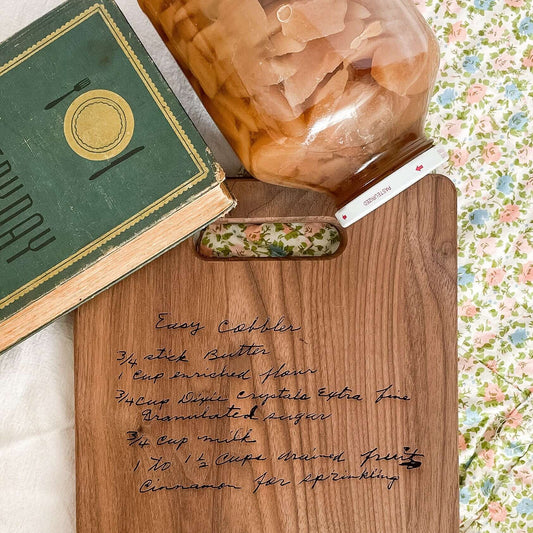 RYDAY
PASTEURIZED
Easy Cobbler
3/4 stick Butter
1 cup enriched flour
3/4 cup Dixie Crystals Extra fine
Granulated sugar
3/4 cup milk
1 to 1 1/2 cups drained fruit
Cinnamon for sprinkling